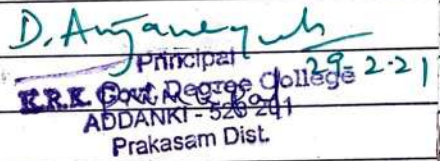 D. Anjaneyulu
29-2-21
Principal
K.R.K. Govt. Degree College
ADDANKI - 523 201
Prakasam Dist.